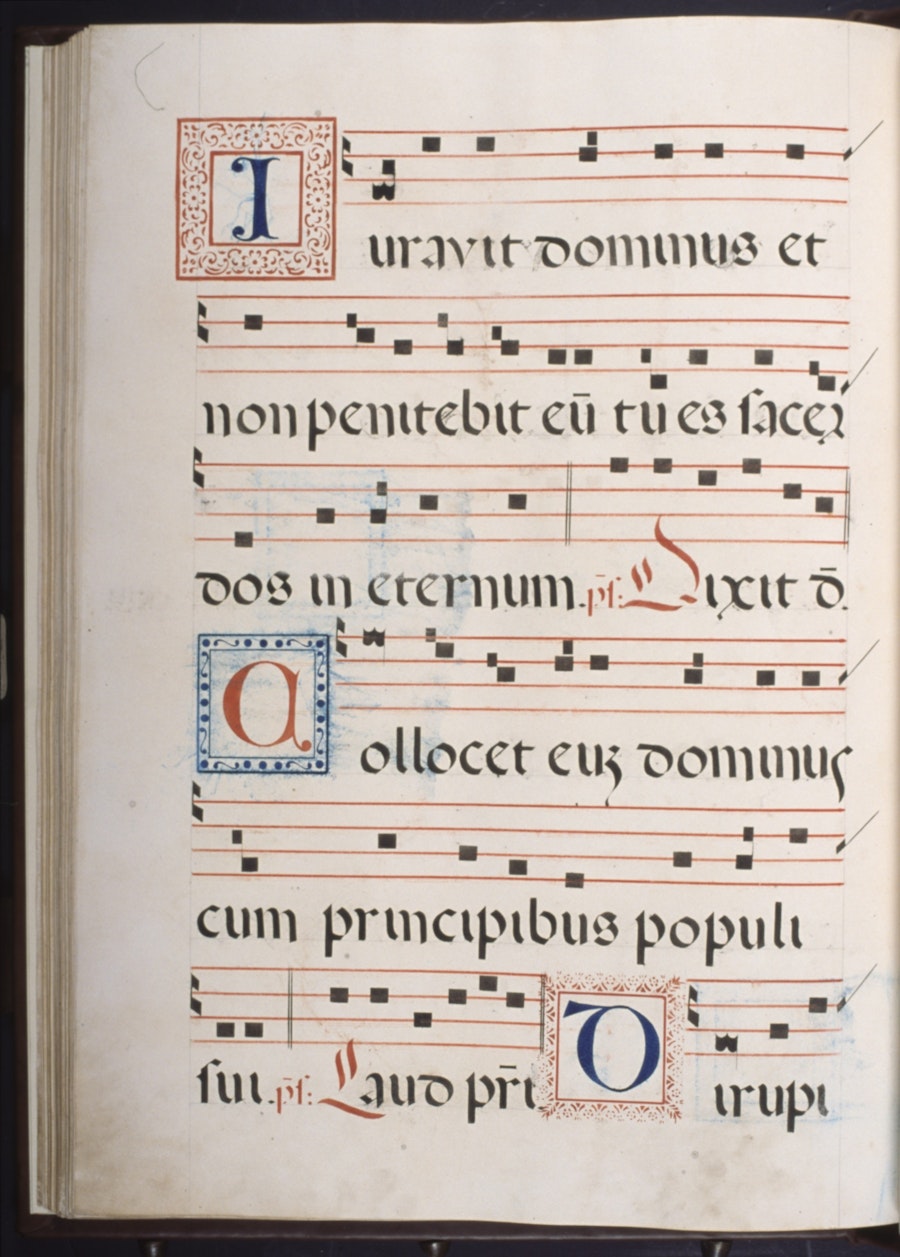 Iuravit dominus et
non penitebit eū tu es sacer
dos in eternum. ps̄: Dixit d̄.
Collocet euꝫ dominus
cum principibus populi
sui. ps̄: Laud pr̄i Dirupi